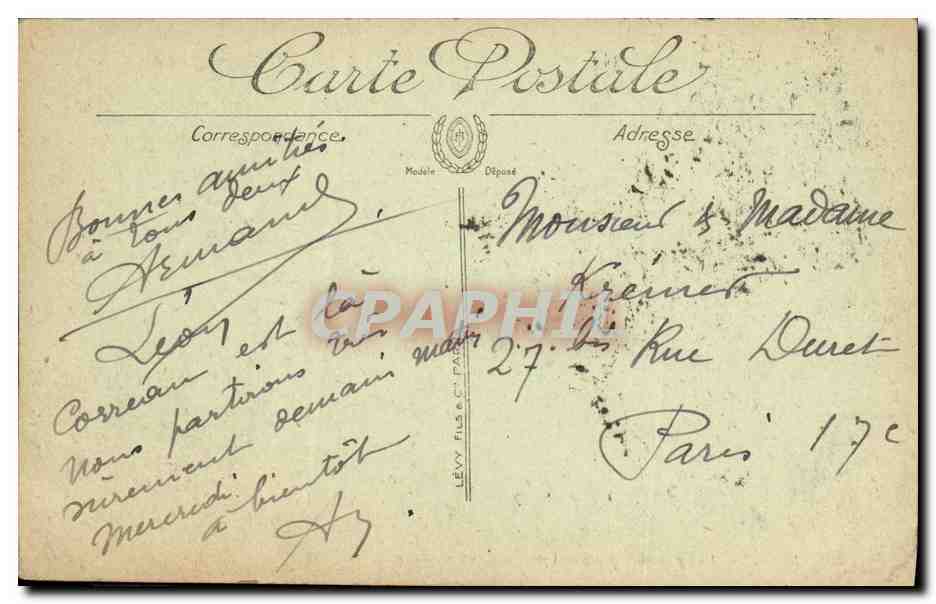 Carte Postale
Correspondance
Adresse
Modèle Déposé
Bonnes amitiés
à vous deux
Armand
Léon
est là
Nous partirons
sûrement demain matin
Mercredi
à bientôt
Monsieur & Madame
Krémer
27 bis Rue Duret
Paris 17e
LÉVY FILS & Cie PARIS
CPAPHIL